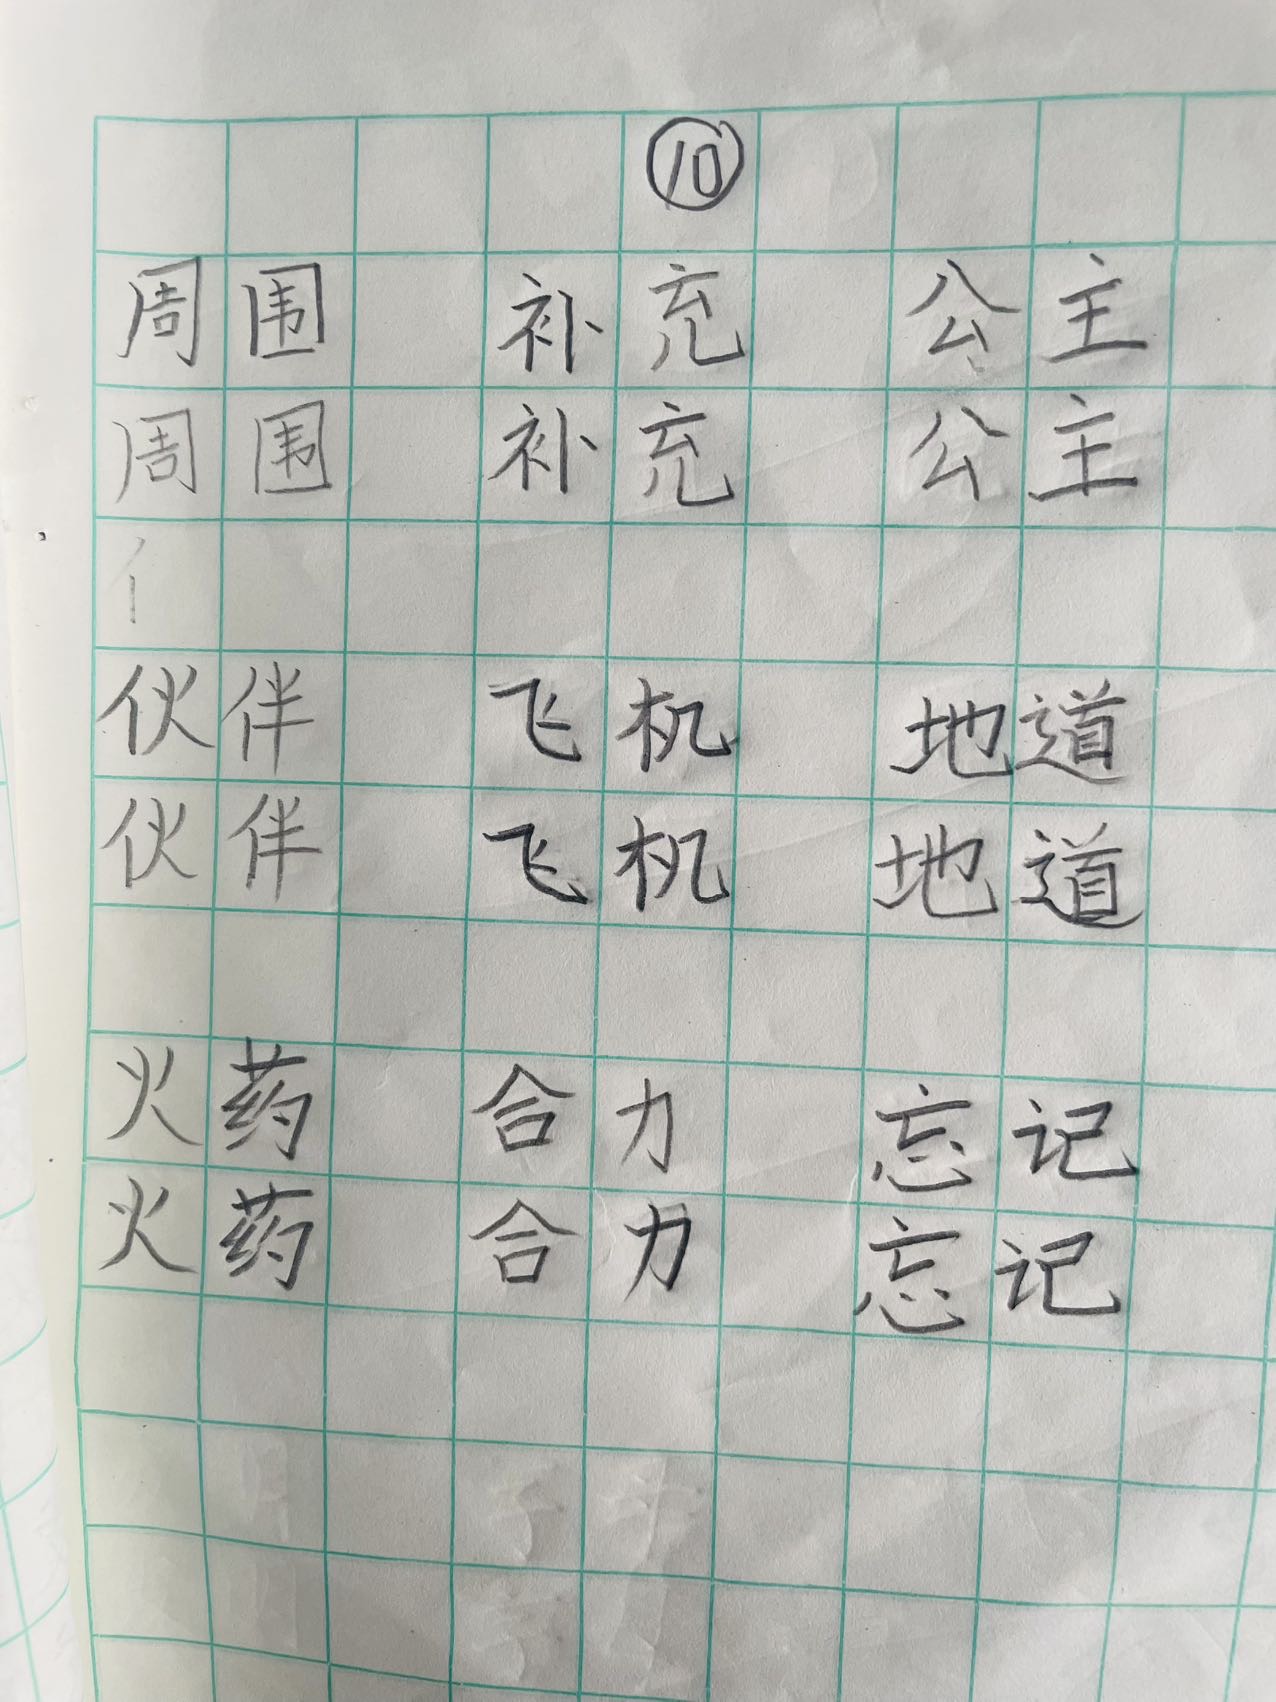 ⑩
周围 补充 公主
周围 补充 公主
亻
伙伴 飞机 地道
伙伴 飞机 地道
火药 合力 忘记
火药 合力 忘记